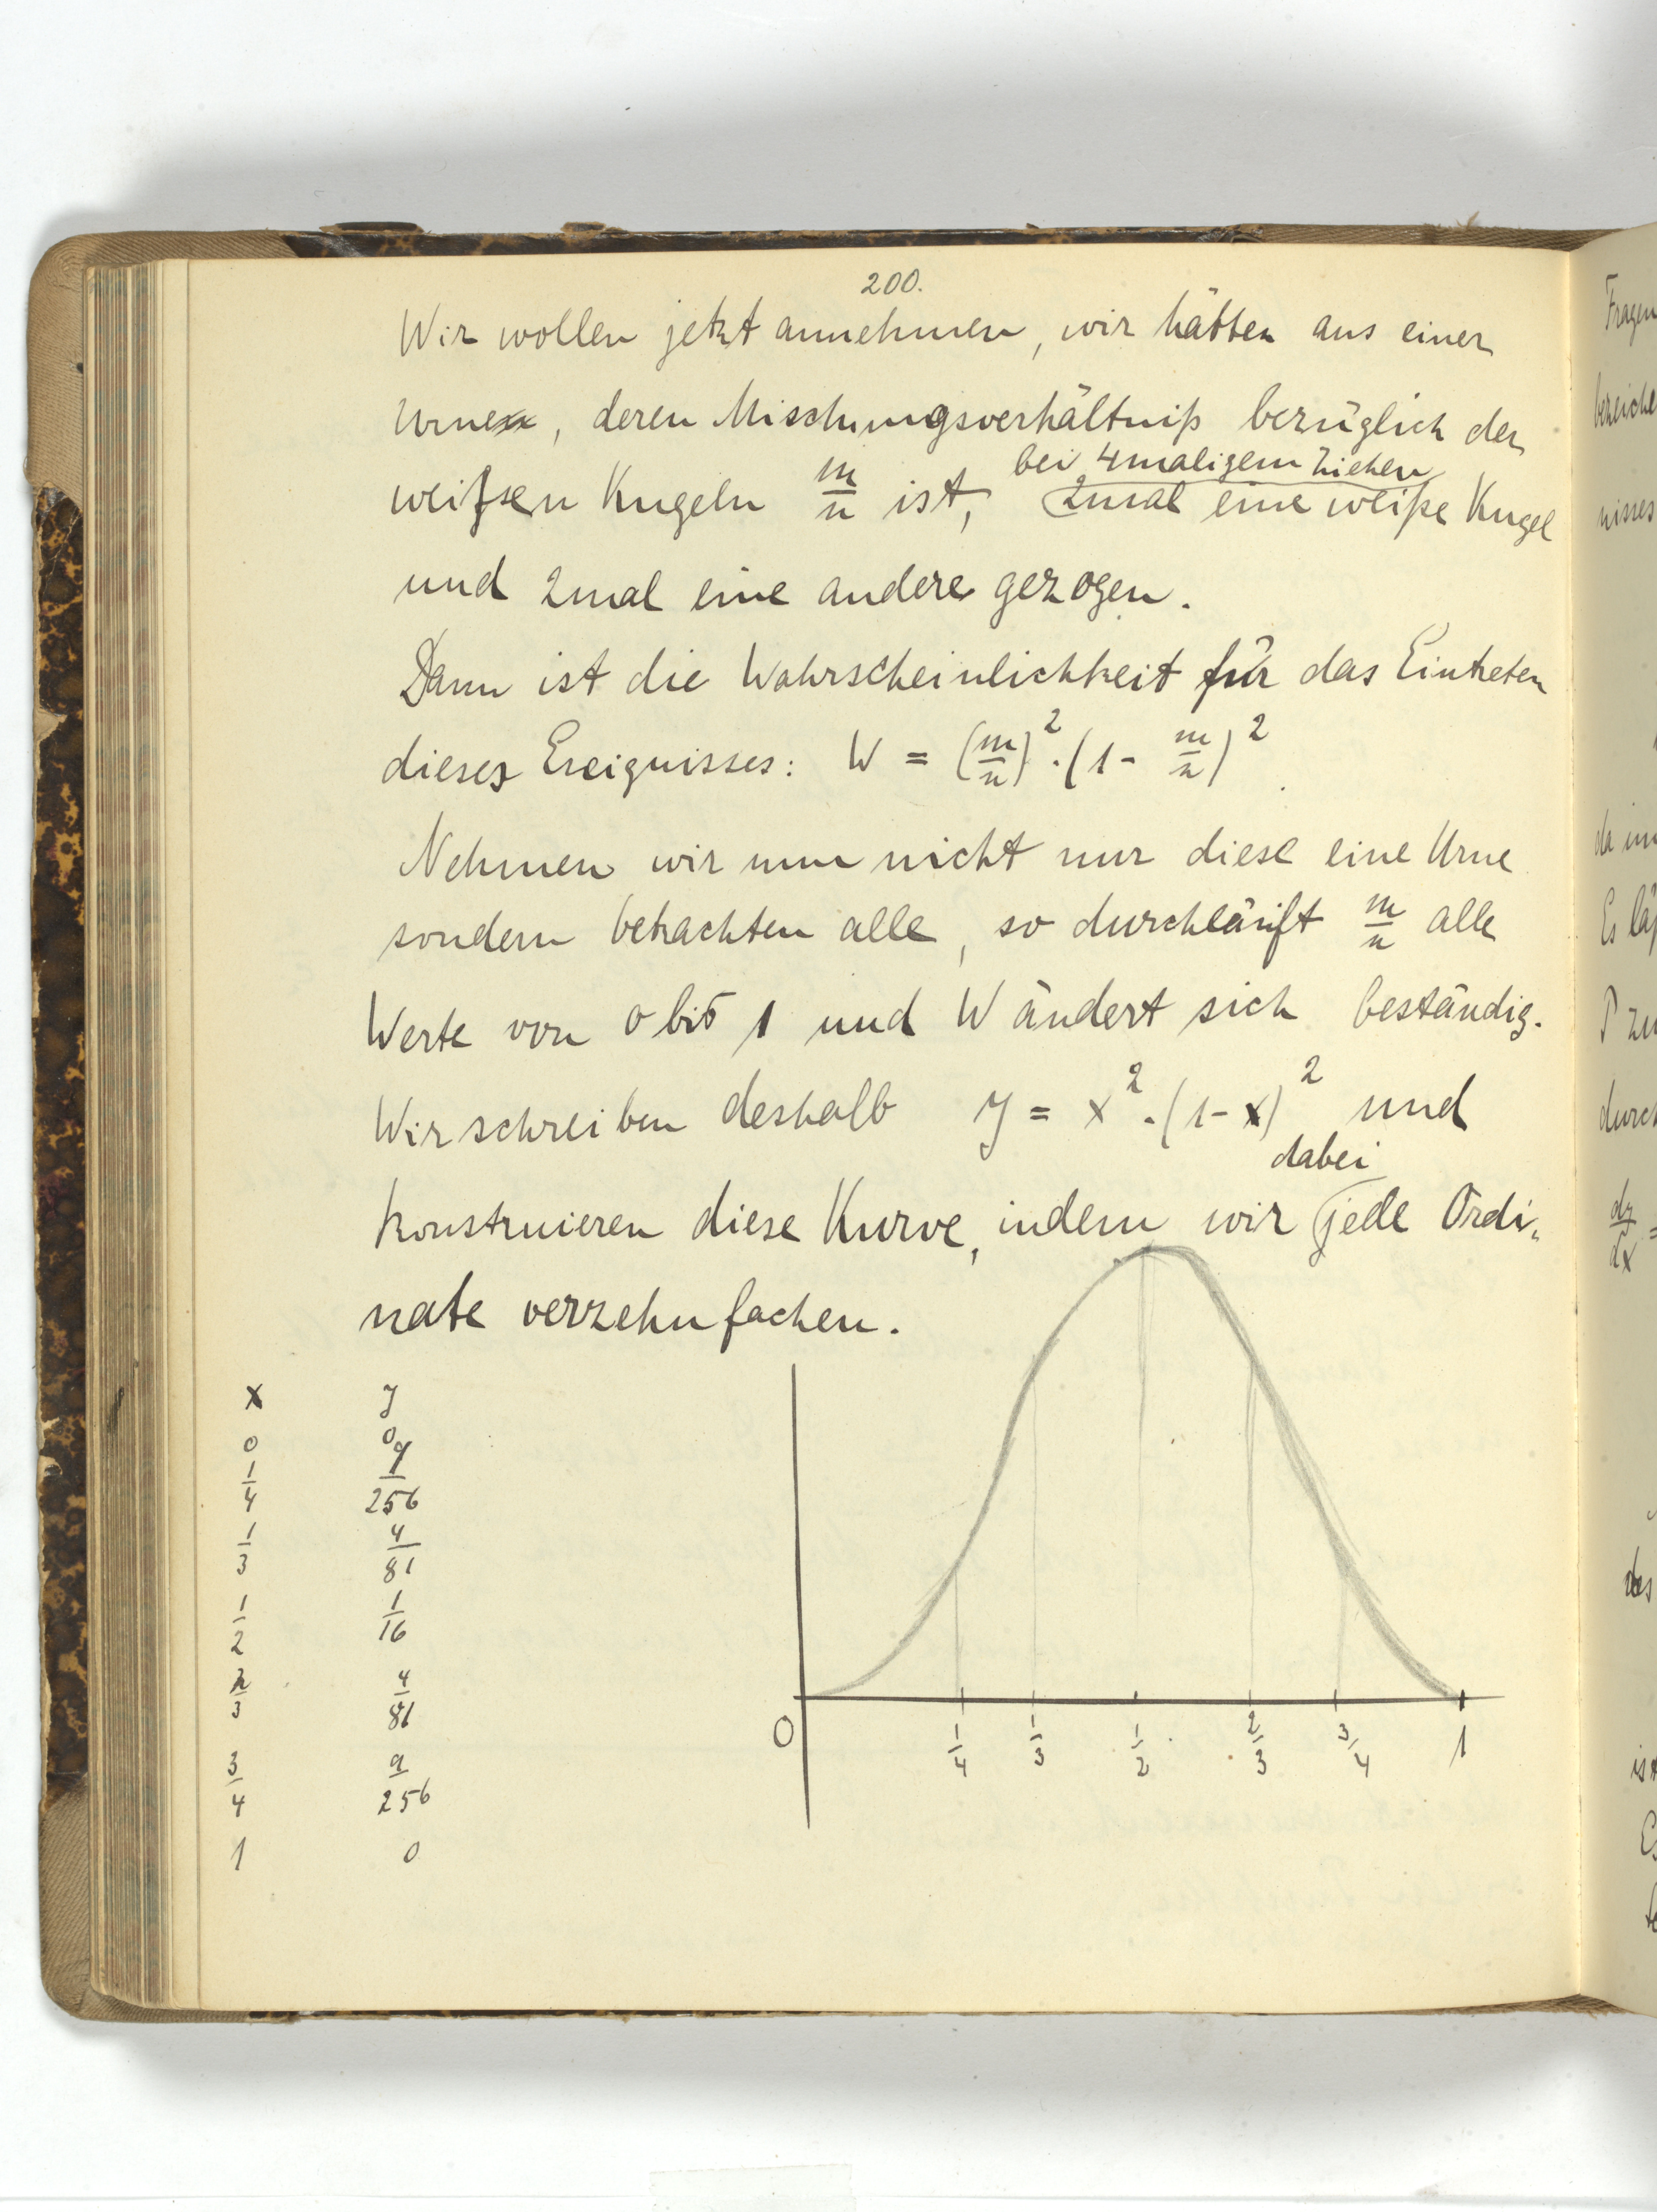 200.
Wir wollen jetzt annehmen, wir hätten aus einer
Urne, deren Mischungsverhältniß bezüglich der
weißen Kugeln m/n ist, bei 4maligem Ziehen 2mal eine weiße Kugel
und 2mal eine andere gezogen.
Dann ist die Wahrscheinlichkeit für das Eintreten
dieses Ereignisses: W = (m/n)² · (1 - m/n)²
Nehmen wir nun nicht nur diese eine Urne
sondern betrachten alle, so durchläuft m/n alle
Werte von 0 bis 1 und W ändert sich beständig.
Wir schreiben deshalb y = x² · (1 - x)² und
konstruieren diese Kurve, indem wir dabei jede Ordi-
nate verzehnfachen.
x y
0 0
1/4 9/256
1/3 4/81
1/2 1/16
2/3 4/81
3/4 9/256
1 0
0 1/4 1/3 1/2 2/3 3/4 1
Fragen
nisses
da
Es
P zu
durch
dy/dx =
des